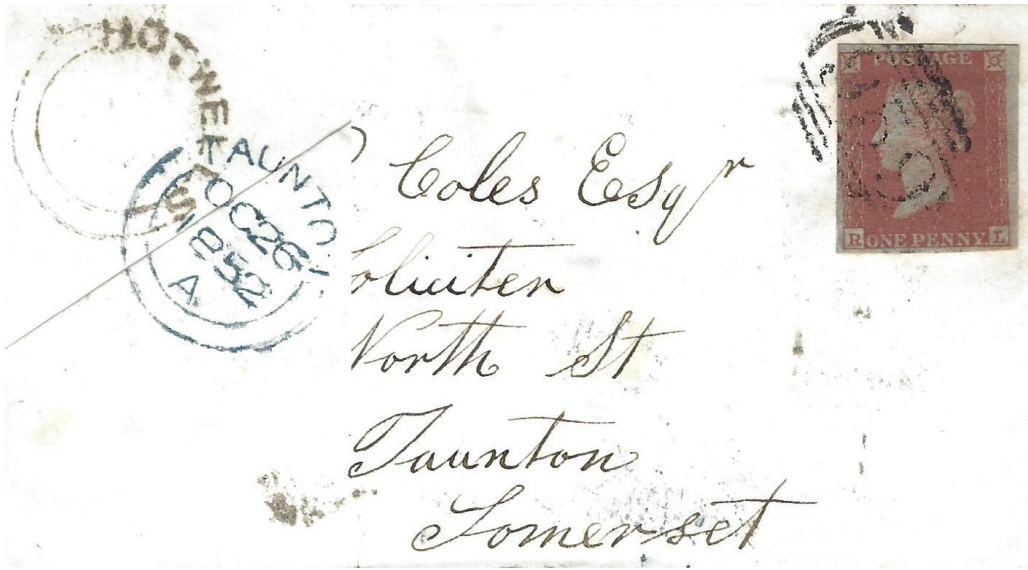 HOTWELLS
TAUNTON
OC26
1852
A
POSTAGE
R ONE PENNY. L
Coles Esqr
Soliciter
North St
Taunton
Somerset